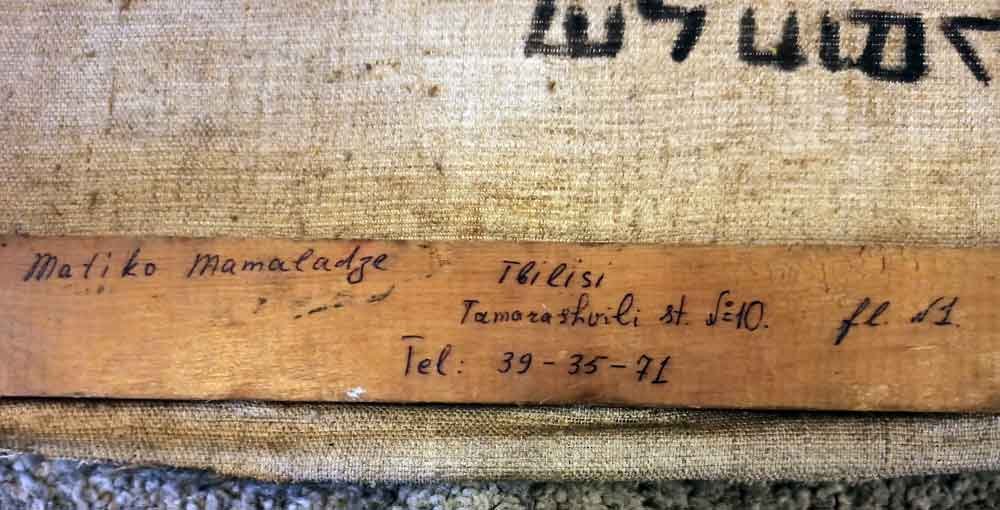 Matiko Mamaladze Tbilisi
Tamarashvili st. №10. fl. №1.
Tel: 39-35-71